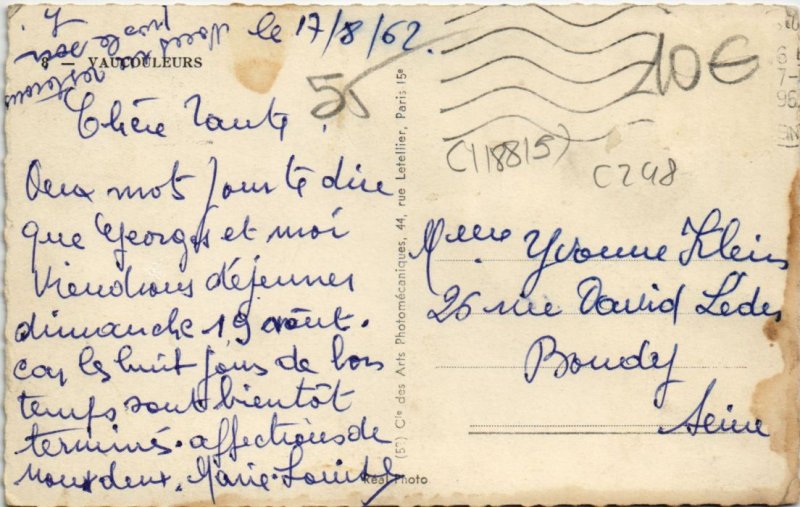 le 17/8/62.
8 — VAUCOULEURS
55
Chère Tante,
Deux mots pour te dire
que Georges et moi
viendrons déjeuner
dimanche 19 août.
car les huit jours de bon
temps sont bientôt
terminés. affections de
nous deux. Marie-Louise
(55) Cie des Arts Photomécaniques, 44, rue Letellier, Paris 15e
Real Photo
10€
(118815)
C248
Mme Yvonne Klein
26 rue David
Bondy
Seine